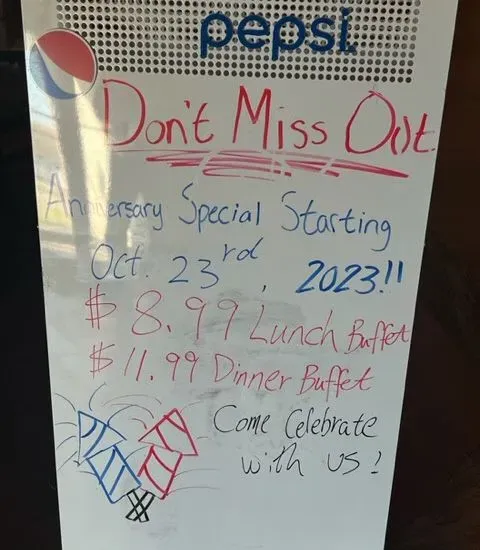 pepsi
Don't Miss Out.
Anniversary Special Starting
Oct. 23rd, 2023!!
$8.99 Lunch Buffet
$11.99 Dinner Buffet
Come Celebrate
with us!